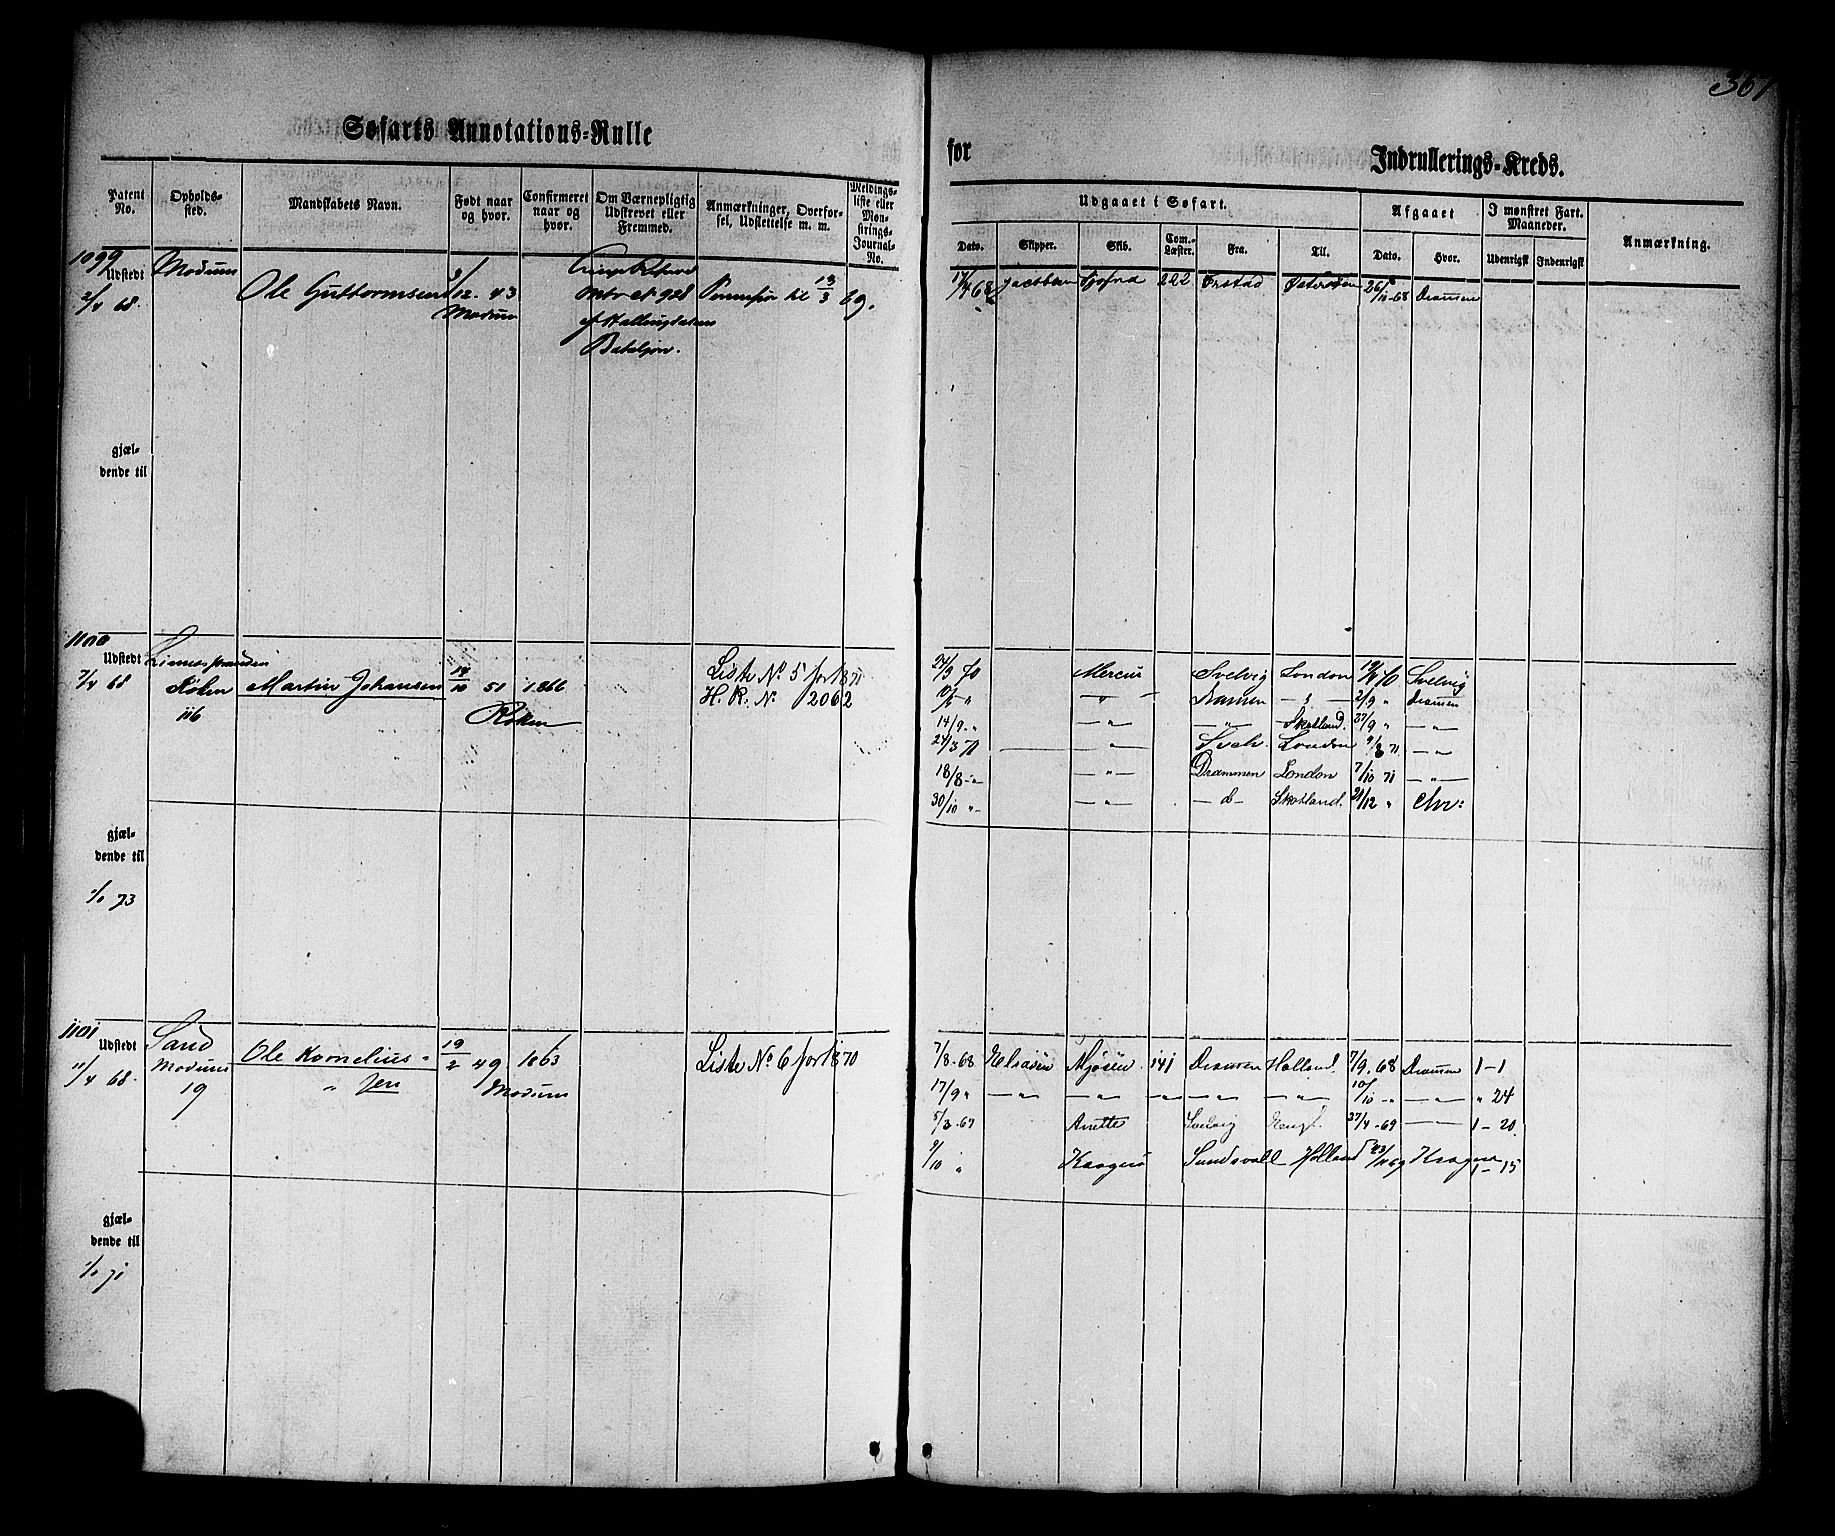 367
Søfarts Annotations-Rulle
for
Indrullerings-Kreds.
Patent No.
Opholds-sted.
Mandskabets Navn.
Født naar og hvor.
Confirmeret naar og hvor.
Om Værnepligtig Udskrevet eller Fremmed.
Anmærkninger, Overfor-sel, Udslettelse m. m.
Meldings-liste eller Møn-strings-Journal-No.
Udgaaet i Søfart.
Afgaaet
I mønstret Fart. Maaneder.
Anmærkning.
Dato.
Skipper.
Skib.
Com.-Læster.
Fra.
Til.
Dato.
Hvor.
Udenrigsk
Indenrigsk
1099
Udstedt
2/4 68.
Modum
Ole Guttormsen
12. 43
Modum
Ntr et 928
af Hallingdalens
Bataljon.
Permisjon til 13/3 69.
17/4 68 Jacobsen 222 26/10-68 Dramen
gjæl-
dende til
1100
Udstedt
7/4 68
Røken
116
Martin Johansen
14/10 51
1866
Røken
Liste No 5 for 1871
H. R. No 2062
24/3 70 Mercur Svelvig London 19/4 70 Svelvig
10/5 " " Dramen 2/9 " Dramen
14/9 " — " — — " — Skotland. 27/9 " — " —
24/3 71 — " — London 9/8 71 — " —
18/8 - " — " — Drammen London 7/10 71 — " —
30/10 " — " — — d — Skotland. 21/12 " Chr:
gjæl-
dende til
1/1 73
1101
Udstedt
11/4 68.
Sand
Modum
19
Ole Kornelius-
" sen
19/2 49
Modum
1863
Liste No 6 for 1870
7/8-68 Mjøsen 141 Dramen Holland 7/9. 68 Dramen 1-1
17/9 " — " — — " — — " — — " — — " — 10/10 - " — " — " 24
5/3-69 Anette Svelvig Engl. 27/4-69 — " — 1-20
9/10 " Kragerø Sundsvall Holland 23/11 69 Kragerø 1-15
gjæl-
dende til
1/1 71